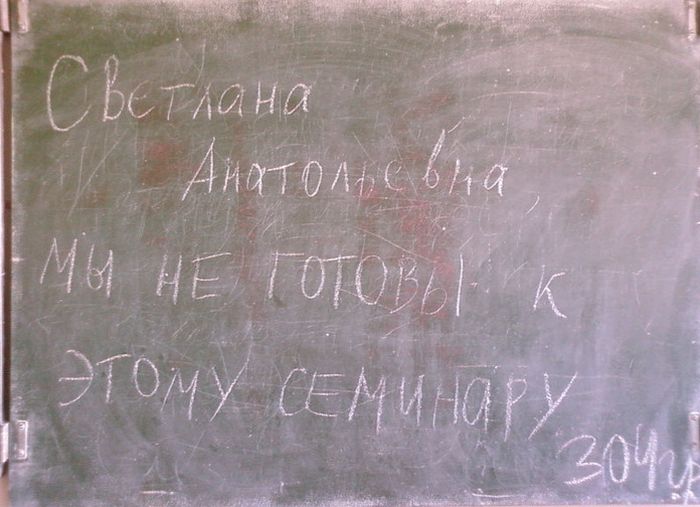 Светлана
Анатольевна,
мы не готовы к
этому семинару
304гр